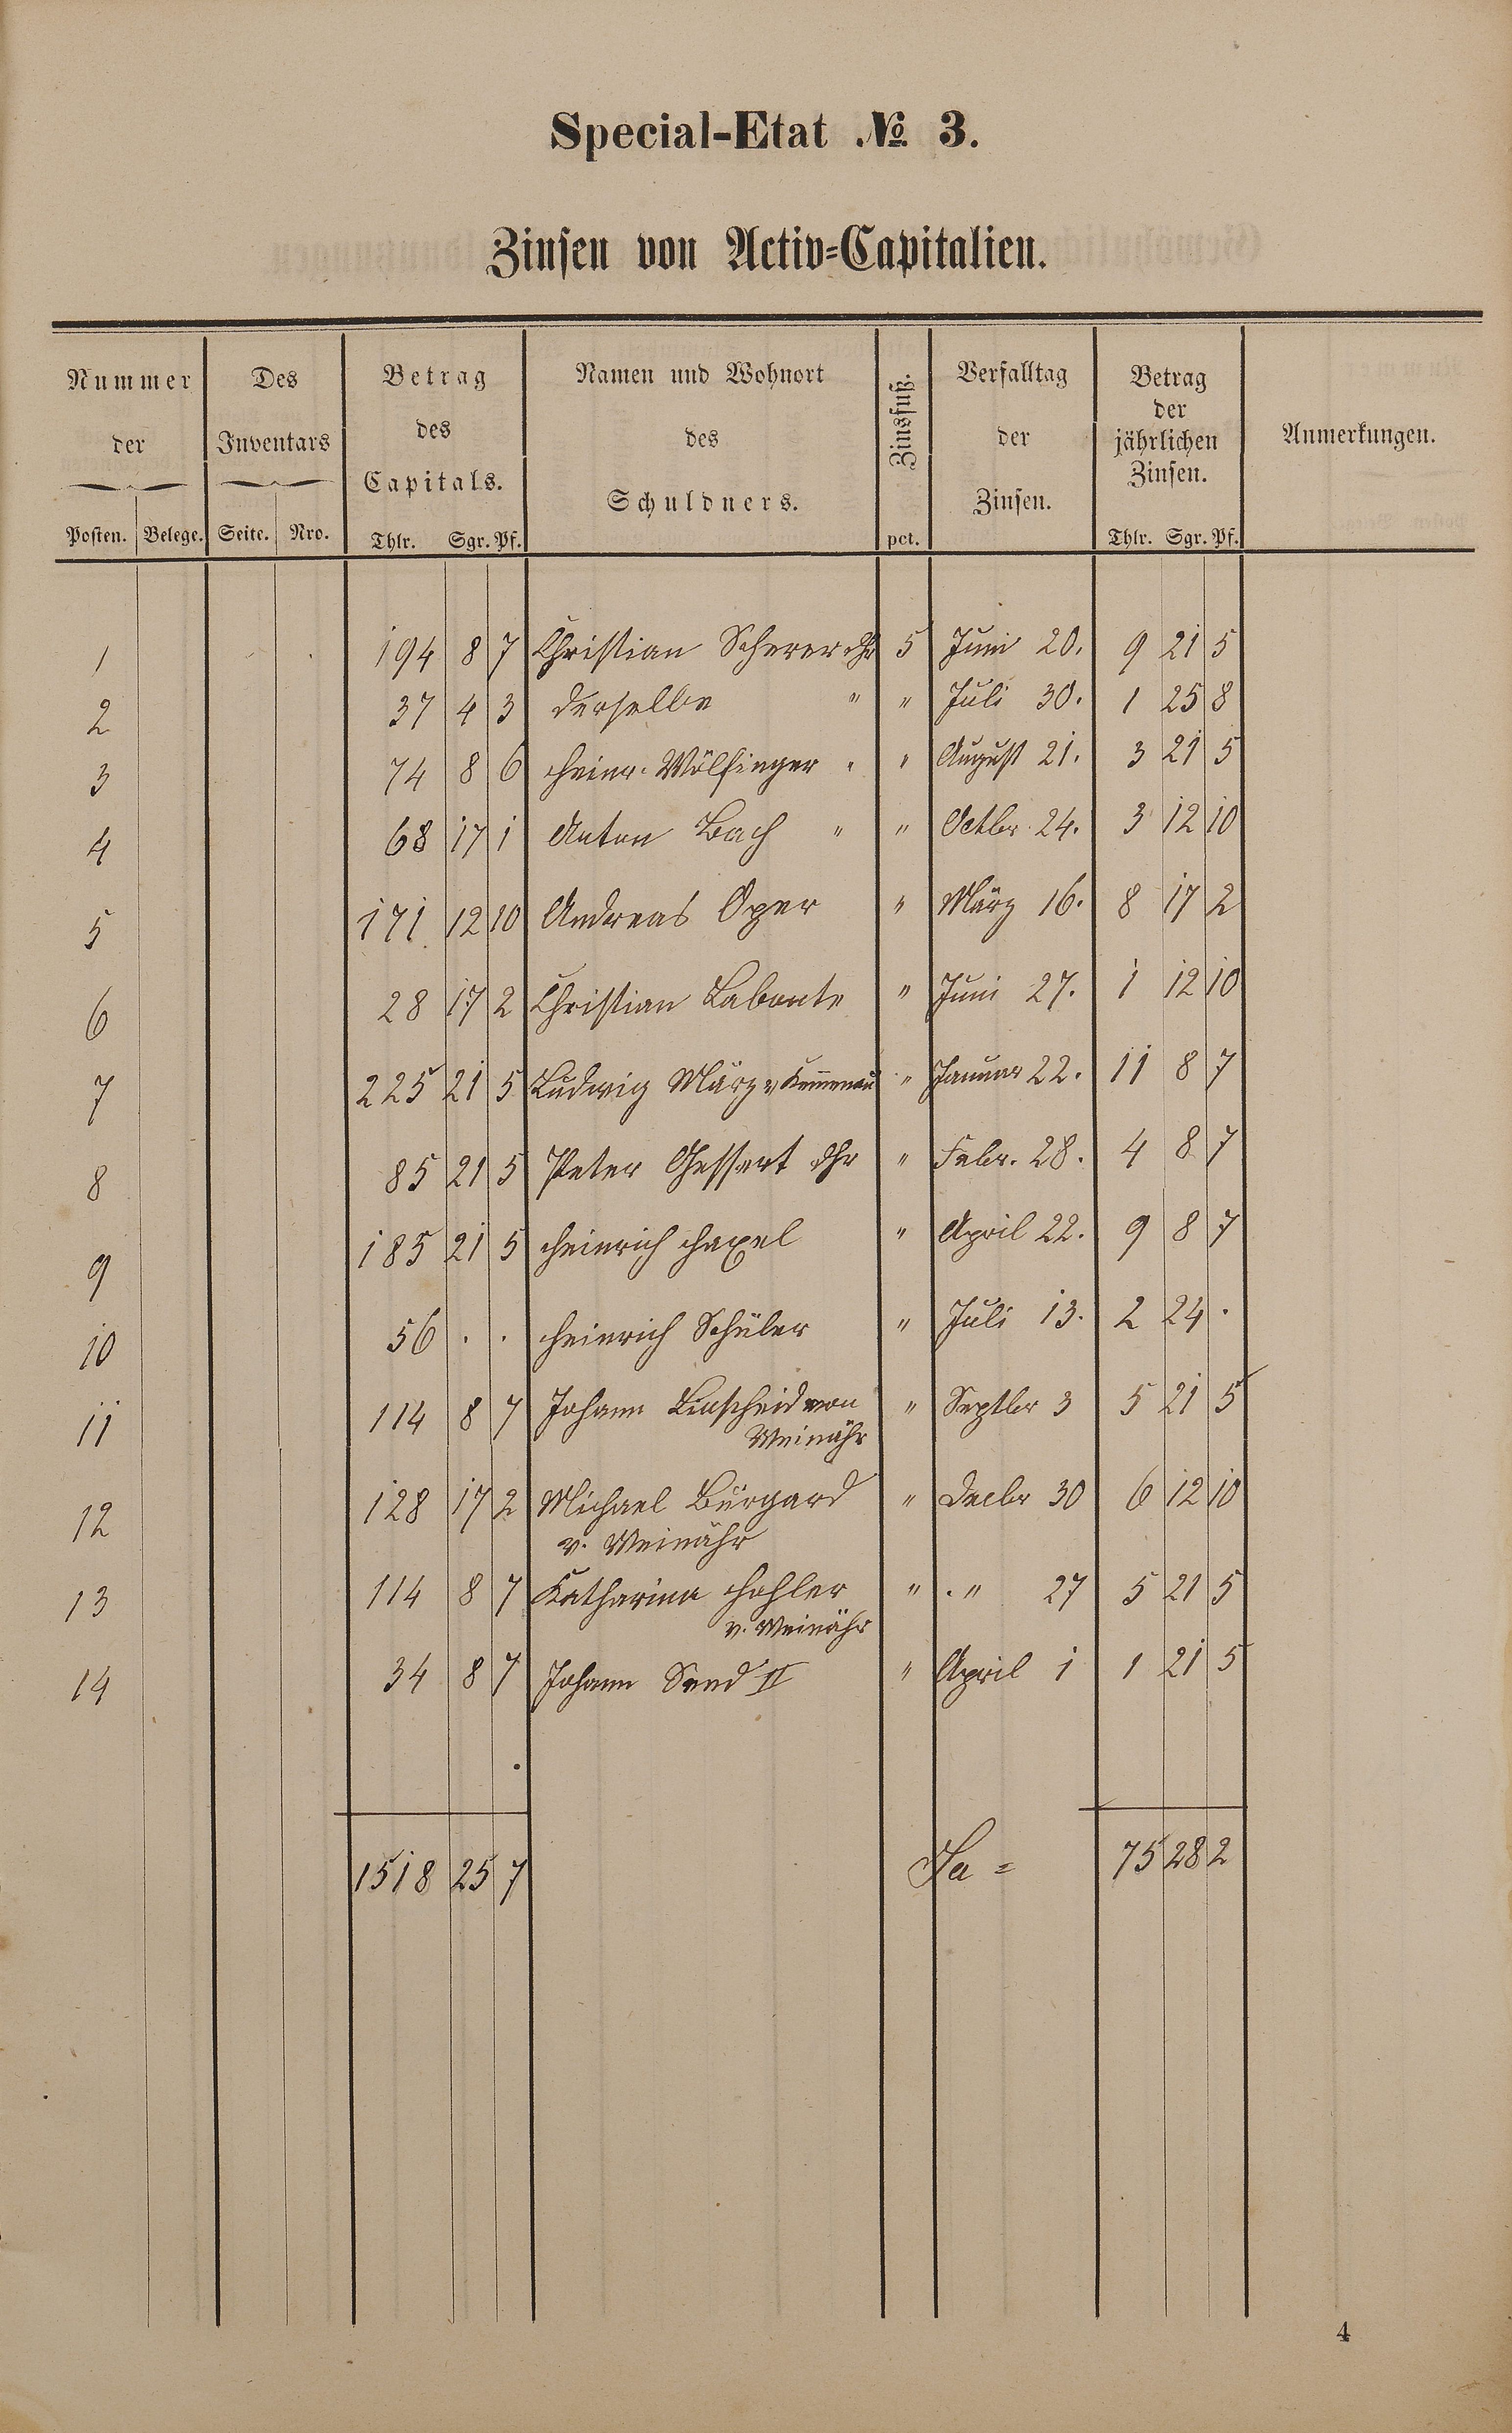 Special-Etat № 3.
Zinsen von Activ-Capitalien.
Nummer der Des Inventars Betrag des Capitals. Namen und Wohnort des Schuldners. Zinsfuß. Verfalltag der Zinsen. Betrag der jährlichen Zinsen. Anmerkungen.
Posten. Belege. Seite. Nro. Thlr. Sgr. Pf. pct. Thlr. Sgr. Pf.
1 194 8 7 Christian Scherer dhr 5 Juni 20. 9 21 5
2 37 4 3 derselbe " " Juli 30. 1 25 8
3 74 8 6 Heinr. Wölfinger " " August 21. 3 21 5
4 68 17 1 Anton Bach " " Octbr 24. 3 12 10
5 171 12 10 Andreas Oper " März 16. 8 17 2
6 28 17 2 Christian Labonte " Juni 27. 1 12 10
7 225 21 5 Ludwig März v Kemmenau " Januar 22. 11 8 7
8 85 21 5 Peter Gessert dhr " Febr. 28. 4 8 7
9 185 21 5 Heinrich " April 22. 9 8 7
10 56 . . Heinrich Schüler " Juli 13. 2 24 .
11 114 8 7 Johann Linscheid von " Septbr 3 5 21 5
Weinähr
12 128 17 2 Michael Burgard " Decbr 30 6 12 10
v. Weinähr
13 114 8 7 Katharina Hohler " " 27 5 21 5
v. Weinähr
14 34 8 7 Johann II " April 1 1 21 5
1518 25 7 Sa = 75 28 2
4